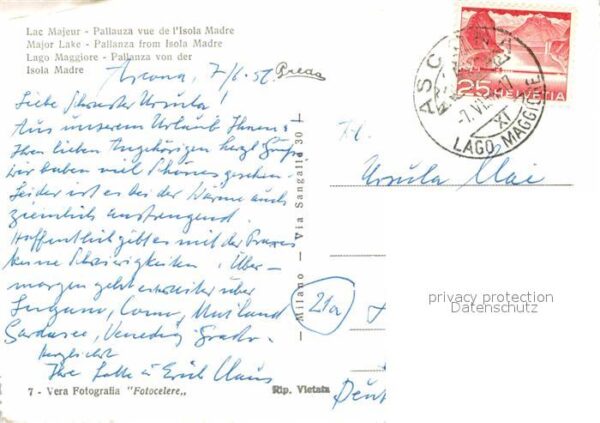 Lac Majeur - Pallauza vue de l'Isola Madre
Major Lake - Pallanza from Isola Madre
Lago Maggiore - Pallanza von der
Isola Madre
Ascona, 7/6. 57
Preda
Liebe Schwester Ursula!
Aus unserem Urlaub Ihnen u.
Ihren lieben Angehörigen herzl. Grüße
wir haben viel Schönes gesehen.
Leider ist es bei der Wärme auch
ziemlich anstrengend.
Hoffentlich gibt es mit der Praxis
keine Schwierigkeiten. Über-
morgen geht es weiter über
Lugano, Como, Mailand
Gardasee, Venedig
Herzlichst
Ihre Lotte u. Erich Claus
7 - Vera Fotografia "Fotocelere„
Rip. Vietata
— Milano — Via Sangallo 30
25
HELVETIA
ASCONA
-7. VI.
XI
LAGO MAGGIORE
Ursula Mai
21a
privacy protection
Datenschutz